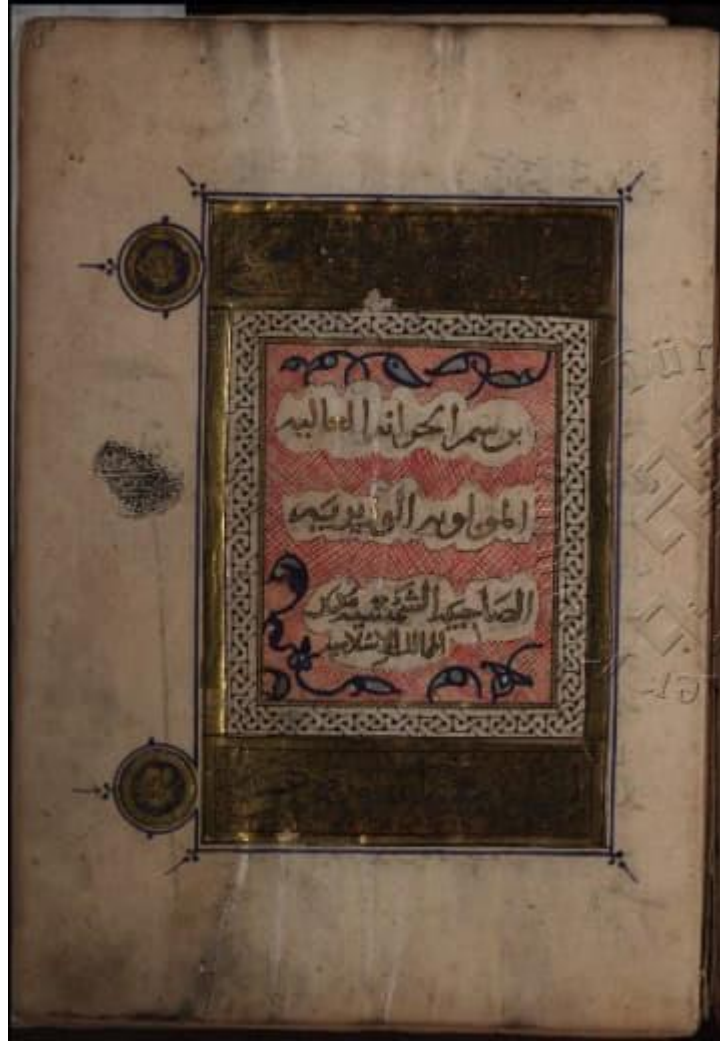 برسم الخزانة العالية
المولوية الوزيرية
الصاحبية الشمسية مدبر
الممالك الإسلامية